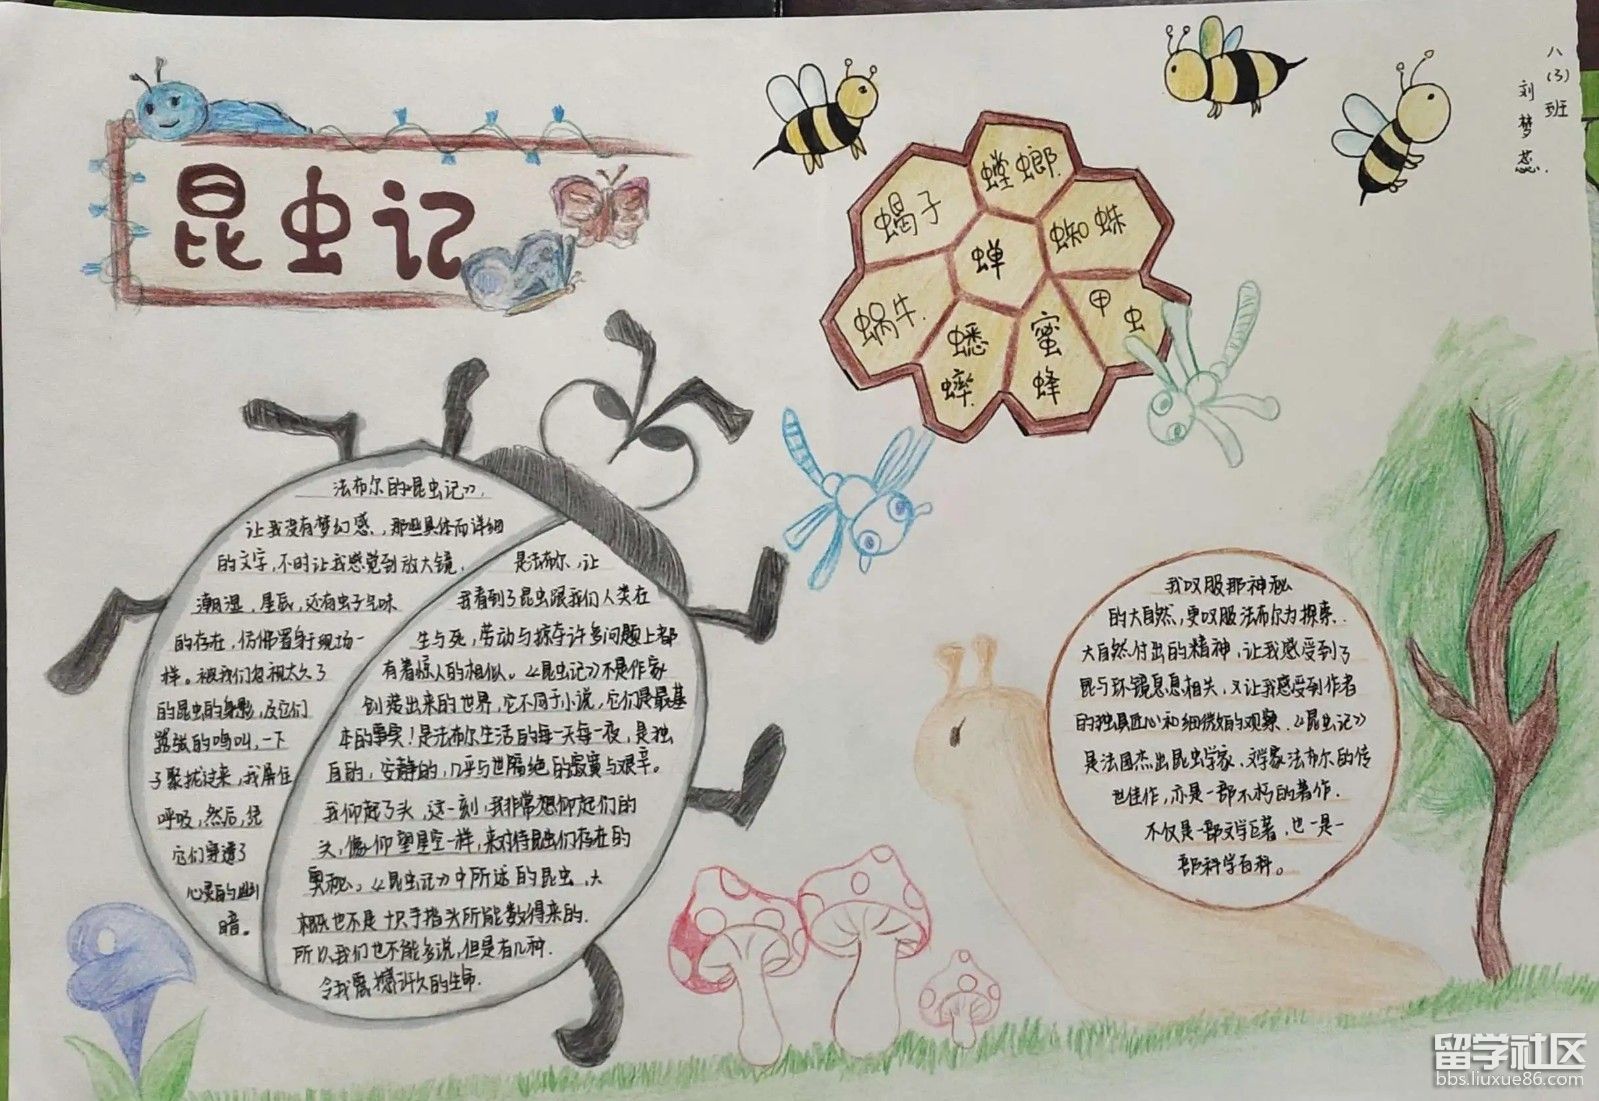 昆虫记
八(3)班
刘梦蕊.
蝎子
螳螂
蜘蛛
蝉
蜗牛.
蟋蟀.
蜜蜂
甲虫
法布尔的《昆虫记》,
让我没有梦幻感,那些具体而详细
的文字,不时让我感觉到放大镜,
潮湿,星辰,还有虫子气味
的存在,仿佛置身于现场一
样。被我们忽视太久了
的昆虫的身影,及它们
嚣张的鸣叫,一下
子聚拢过来,我屏住
呼吸,然后,凭
它们穿透了
心灵的幽
暗。
是法布尔,让
我看到了昆虫跟我们人类在
生与死,劳动与掠夺许多问题上都
有着惊人的相似。《昆虫记》不是作家
创造出来的世界,它不同于小说,它们是最基
本的事实!是法布尔生活的每一天每一夜,是独
自的,安静的,几乎与世隔绝的寂寞与艰辛。
我仰起了头,这一刻,我非常想仰起们的
头,像仰望星空一样,来对待昆虫们存在的
奥秘。《昆虫记》中所述的昆虫,大
概也不是十只手指头所能数得来的.
所以我们也不能多说,但是有几种.
令我震撼许久的生命.
我叹服那神秘
的大自然,更叹服法布尔为探索.
大自然付出的精神,让我感受到了
昆与环镜息息相关,又让我感受到作者
的独具匠心和细微的观察.《昆虫记》
是法国杰出昆虫学家、文学家法布尔的传
世佳作,亦是一部不朽的著作.
不仅是一部文学巨著,也一是一
部科学百科。
留学社区
bbs.liuxue86.com